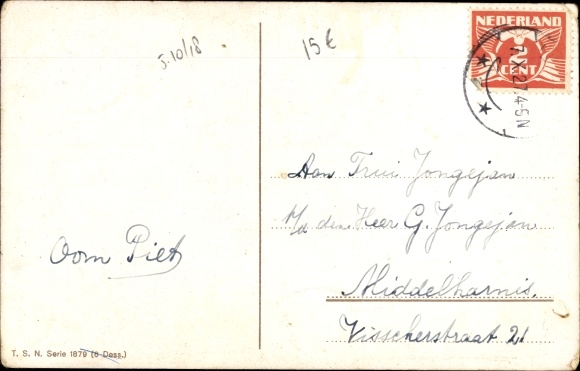 5.10/18
15€
NEDERLAND
CENT
X.27.4-5N
Aan Trui Jongejan
p/a den Heer G. Jongejan
Middelharnis.
Visscherstraat 21
Oom Piet
T. S. N. Serie 1879 (6 Dess.)